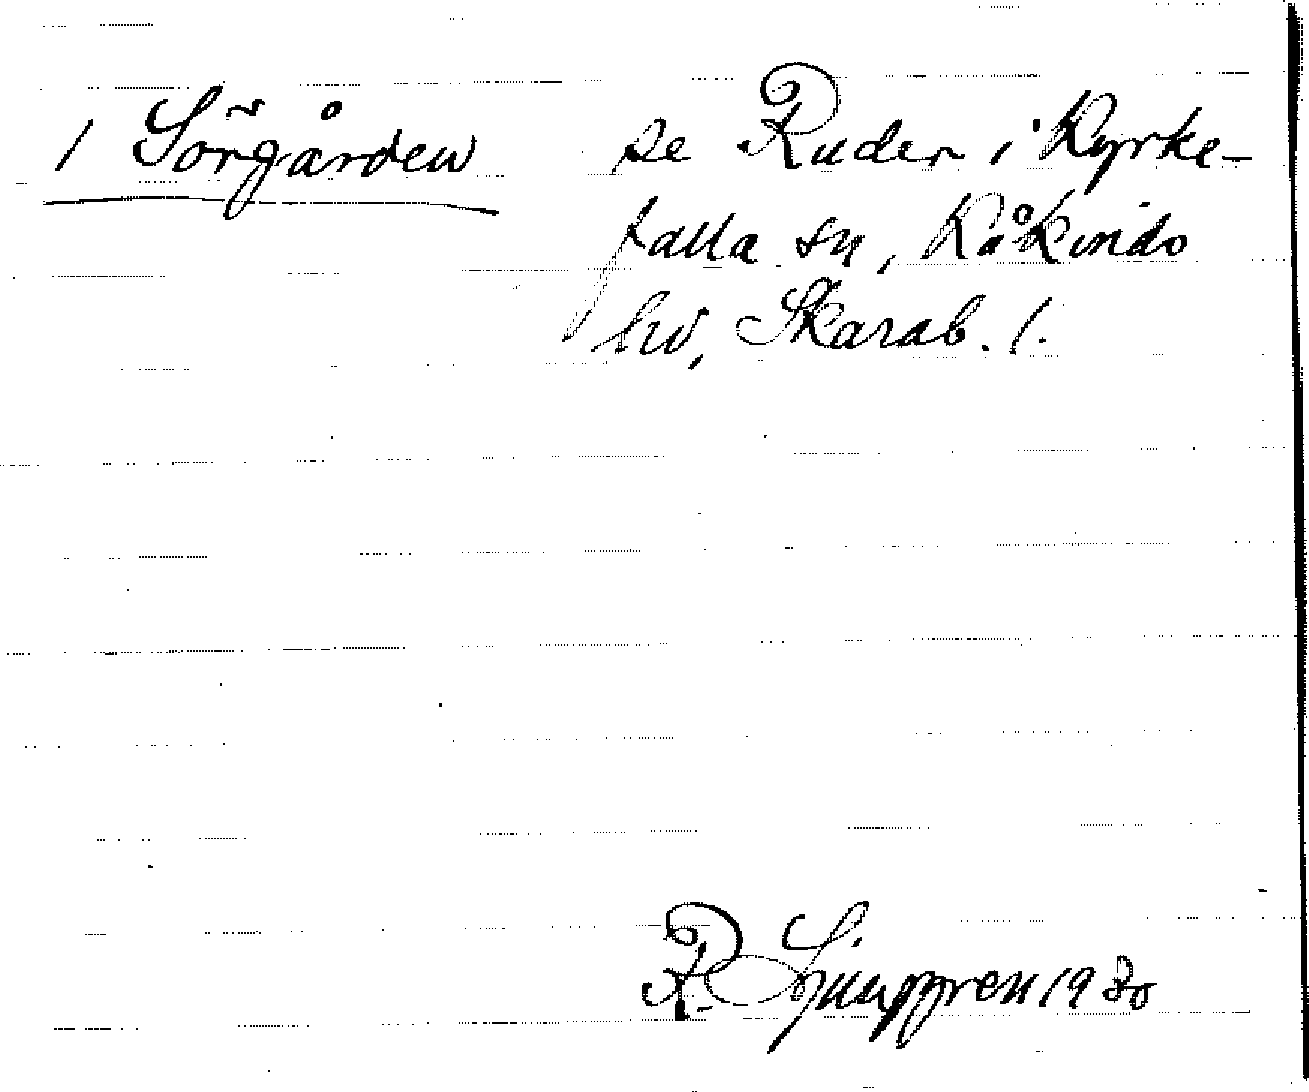 1 Sörgården se Ruder i Kyrke-
falla sn, Kåkinds
hd, Skarab. l.
R. Ljunggren 1930